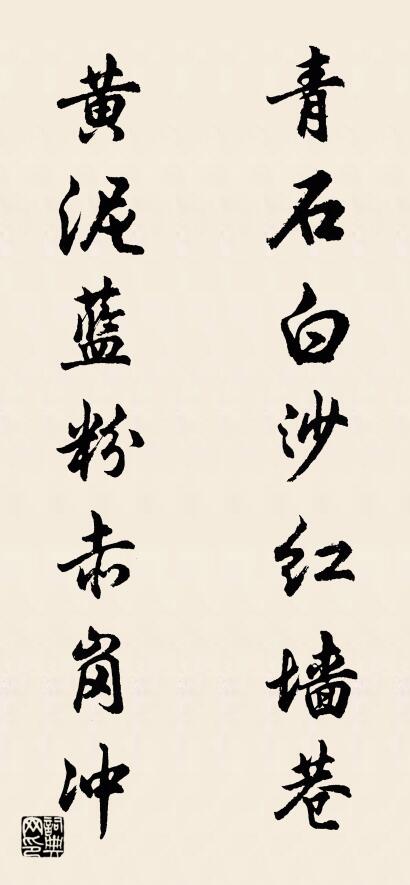 青石白沙红墙巷
黄泥蓝粉赤岗冲
詞典网印